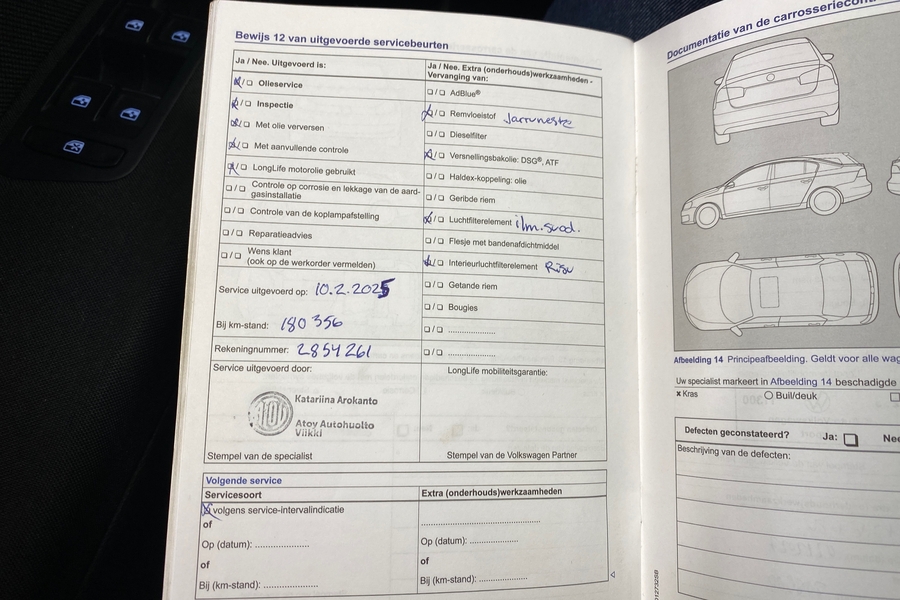 Bewijs 12 van uitgevoerde servicebeurten
Ja / Nee. Uitgevoerd is:
Olieservice
Inspectie
Met olie verversen
Met aanvullende controle
LongLife motorolie gebruikt
Controle op corrosie en lekkage van de aard-
gasinstallatie
Controle van de koplampafstelling
Reparatieadvies
Wens klant
(ook op de werkorder vermelden)
Service uitgevoerd op: 10.2.2025
Bij km-stand: 180 356
Rekeningnummer: 2854261
Service uitgevoerd door:
Katariina Arokanto
Atoy Autohuolto
Viikki
Stempel van de specialist
Ja / Nee. Extra (onderhouds)werkzaamheden -
Vervanging van:
AdBlue®
Remvloeistof Jarruneste
Dieselfilter
Versnellingsbakolie: DSG®, ATF
Haldex-koppeling: olie
Geribde riem
Luchtfilterelement ilm.suod.
Flesje met bandenafdichtmiddel
Interieurluchtfilterelement
Getande riem
Bougies
LongLife mobiliteitsgarantie:
Stempel van de Volkswagen Partner
Volgende service
Servicesoort
volgens service-intervalindicatie
of
Op (datum): ....................
of
Bij (km-stand): ....................
Extra (onderhouds)werkzaamheden
Op (datum): ....................
of
Bij (km-stand): ....................
Documentatie van de
Afbeelding 14 Principeafbeelding. Geldt voor alle
Uw specialist markeert in Afbeelding 14 beschadigde
x Kras
Buil/deuk
Defecten geconstateerd?
Ja:
Beschrijving van de defecten: